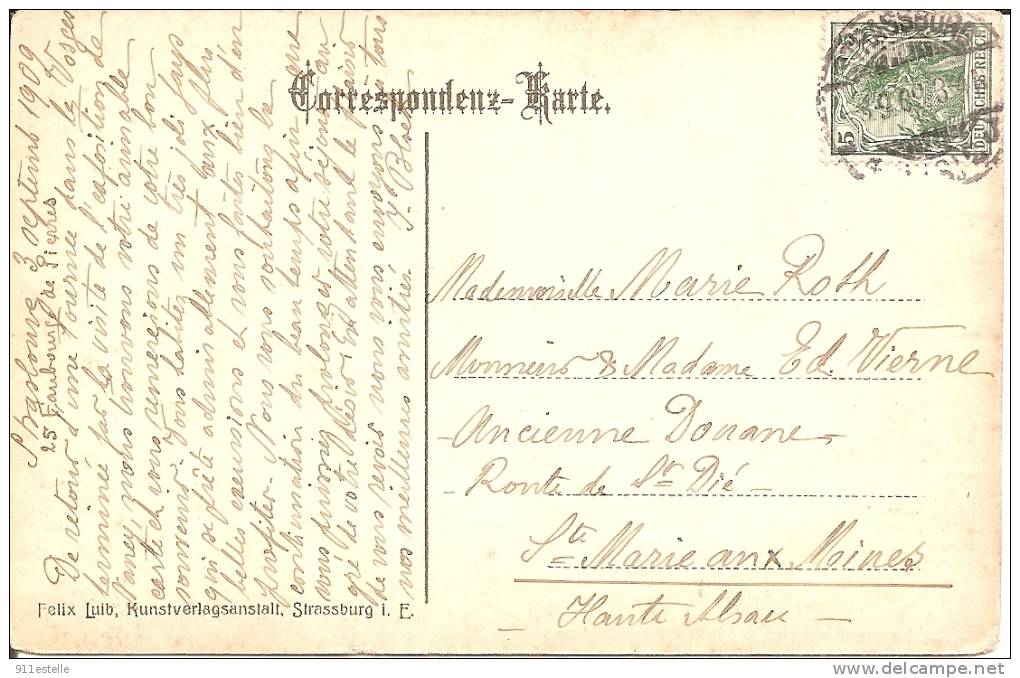 Correspondenz-Karte.
STRASSBURG
5
DEUTSCHES REICH
Strasbourg 3 septemb 1909
25 Faubourg de Pierres
De retour d'une tournée dans les Vosges
terminée par la visite de l'exposition de
Nancy, nous trouvons votre aimable
carte et vous remercions de votre bon
souvenir. Vous habitez un très joli pays
qui se prête admirablement aux plus
belles excursions et vous faites bien d'en
profiter. Nous vous souhaitons la
continuation du beau temps afin que
vous puissiez prolonger votre séjour au
gré de votre désir. En attendant le plaisir
de vous revoir nous vous envoyons à tous
nos meilleures amitiés.
Mademoiselle Marie Roth
Monsieur & Madame Ed. Vierne
- Ancienne Douane -
- Route de St Dié -
Ste Marie aux Mines
- Haute Alsace -
Felix Luib, Kunstverlagsanstalt, Strassburg i. E.
911estelle
delcampe.net